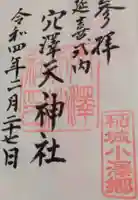 参拝
延喜式内
穴澤天神社
令和四年二月二十七日
稲城小澤郷